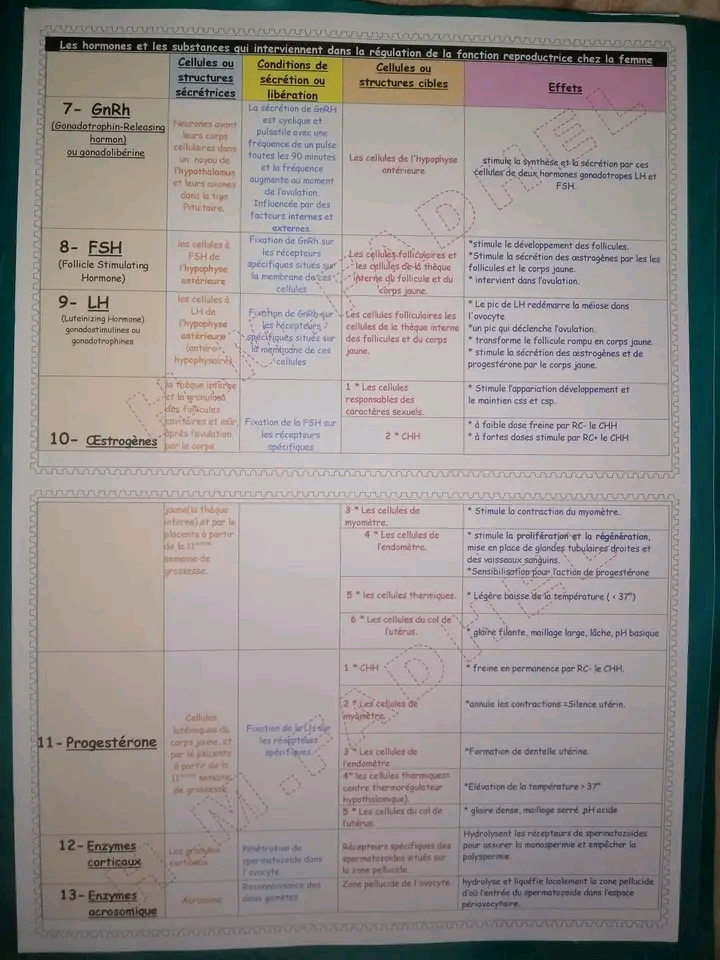 Les hormones et les substances qui interviennent dans la régulation de la fonction reproductrice chez la femme
Cellules ou
structures
sécrétrices
Conditions de
sécrétion ou
libération
Cellules ou
structures cibles
Effets
7- GnRh
(Gonadotrophin-Releasing
hormon)
ou gonadolibérine
Neurones ayant
leurs corps
cellulaires dans
un noyau de
l'hypothalamus
et leurs axones
dans la tige
Pituitaire.
La sécrétion de GnRH
est cyclique et
pulsatile avec une
fréquence de un pulse
toutes les 90 minutes
et la fréquence
augmente au moment
de l'ovulation.
Influencée par des
facteurs internes et
externes.
Les cellules de l'hypophyse
antérieure
stimule la synthèse et la sécrétion par ces
cellules de deux hormones gonadotropes LH et
FSH.
8- FSH
(Follicle Stimulating
Hormone)
les cellules à
FSH de
l'hypophyse
antérieure
Fixation de GnRh sur
les récepteurs
spécifiques situés sur
la membrane de ces
cellules
Les cellules folliculaires et
les cellules de la thèque
interne du follicule et du
corps jaune.
*stimule le développement des follicules.
*Stimule la sécrétion des œstrogènes par les les
follicules et le corps jaune.
* intervient dans l'ovulation.
9- LH
(Luteinizing Hormone)
gonadostimulines ou
gonadotrophines
les cellules à
LH de
l'hypophyse
antérieure
(antéro-
hypophysaire)
Fixation de GnRh sur
les récepteurs
spécifiques situés sur
la membrane de ces
cellules
Les cellules folliculaires les
cellules de la thèque interne
des follicules et du corps
jaune.
* Le pic de LH redémarre la méiose dans
l'ovocyte
*un pic qui déclenche l'ovulation.
* transforme le follicule rompu en corps jaune.
* stimule la sécrétion des œstrogènes et de
progestérone par le corps jaune.
10- Œstrogènes
la thèque interne
et la granulosa
des follicules
cavitaires et mûr,
après l'ovulation,
par le corps
Fixation de la FSH sur
les récepteurs
spécifiques
1 * Les cellules
responsables des
caractères sexuels.
* Stimule l'appariation développement et
le maintien css et csp.
2 * CHH
* à faible dose freine par RC- le CHH
* à fortes doses stimule par RC+ le CHH
jaune(la thèque
interne),et par le
placenta à partir
de la 11ème
semaine de
grossesse.
3 * Les cellules de
myomètre.
* Stimule la contraction du myomètre.
4 * Les cellules de
l'endomètre.
* stimule la prolifération et la régénération,
mise en place de glandes tubulaires droites et
des vaisseaux sanguins.
*Sensibilisation pour l'action de progestérone
5 * les cellules thermiques.
* Légère baisse de la température ( < 37°)
6 * Les cellules du col de
l'utérus.
* glaire filante, maillage large, lâche, pH basique
11- Progestérone
Cellules
lutéiniques du
corps jaune, et
par le placenta
à partir de la
11ème semaine
de grossesse.
Fixation de la LH sur
les récepteurs
spécifiques.
1 * CHH
* freine en permanence par RC- le CHH.
2 * Les cellules de
myomètre.
*annule les contractions =Silence utérin.
3 * Les cellules de
l'endomètre
*Formation de dentelle utérine.
4* les cellules thermiques=
centre thermorégulateur
hypothalamique).
*Elévation de la température > 37°
5 * Les cellules du col de
l'utérus.
* glaire dense, maillage serré ,pH acide
12- Enzymes
corticaux
Les granules
corticaux
Pénétration de
spermatozoïde dans
l'ovocyte
Récepteurs spécifiques des
spermatozoïdes situés sur
la zone pellucide
Hydrolysent les récepteurs de spermatozoïdes
pour assurer la monospermie et empêcher la
polyspermie.
13- Enzymes
acrosomique
Acrosome
Reconnaissance des
deux gamètes
Zone pellucide de l'ovocyte
hydrolyse et liquéfie localement la zone pellucide
d'où l'entrée du spermatozoïde dans l'espace
périovocytaire.